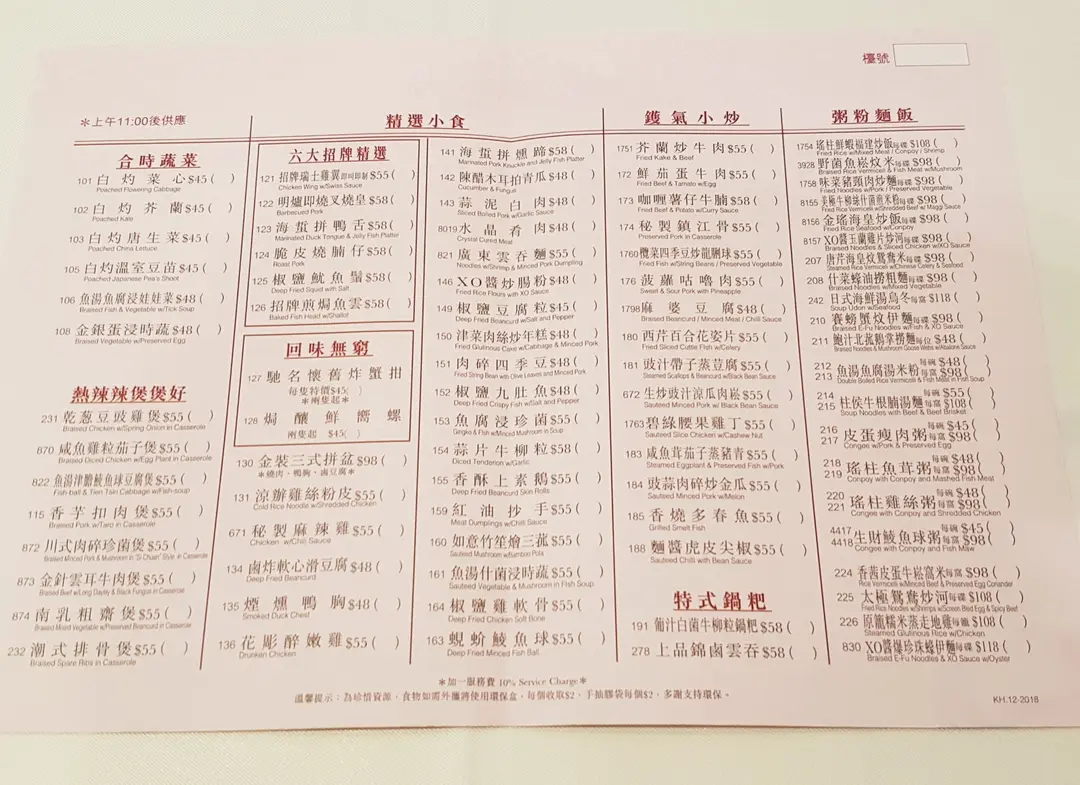 檯號
＊上午11:00後供應
合時蔬菜
101 白灼菜心 $45 ( )
Poached Flowering Cabbage
102 白灼芥蘭 $45 ( )
Poached Kale
103 白灼唐生菜 $45 ( )
Poached China Lettuce
105 白灼溫室豆苗 $45 ( )
Poached Japanese Pea's Shoot
106 魚湯魚腐浸娃娃菜 $48 ( )
Braised Fish & Vegetable w/Tick Soup
108 金銀蛋浸時蔬 $48 ( )
Braised Vegetable w/Preserved Egg
熱辣辣煲煲好
231 乾葱豆豉雞煲 $55 ( )
Braised Chicken w/Spring Onion in Casserole
870 咸魚雞粒茄子煲 $55 ( )
Braised Diced Chicken w/Egg Plant in Casserole
822 魚湯津膽鯪魚球豆腐煲 $55 ( )
Fish-ball & Tien Tsin Cabbage w/Fish-soup
115 香芋扣肉煲 $55 ( )
Braised Pork w/Taro in Casserole
872 川式肉碎珍菌煲 $55 ( )
Braised Minced Pork & Mushroom in "Si Chuan" Style, in Casserole
873 金針雲耳牛肉煲 $55 ( )
Braised Beef w/Long Dayley & Black Fungus in Casserole
874 南乳粗齋煲 $55 ( )
Braised Mixed Vegetable w/Preserved Beancurd in Casserole
232 潮式排骨煲 $55 ( )
Braised Spare Ribs in Casserole
精選小食
六大招牌精選
121 招牌瑞士雞翼 即叫即制 $55 ( )
Chicken Wing w/Swiss Sauce
122 明爐即燒叉燒皇 $58 ( )
Barbecued Pork
123 海蜇拼鴨舌 $58 ( )
Marinated Duck Tongue & Jelly Fish Platter
124 脆皮燒腩仔 $58 ( )
Roast Pork
125 椒鹽魷魚鬚 $58 ( )
Deep Fried Squid with Salt
126 招牌煎焗魚雲 $58 ( )
Baked Fish Head w/Shallot
回味無窮
127 馳名懷舊炸蟹拑
每隻特價$45( )
＊兩隻起＊
128 焗釀鮮嚮螺
兩隻起 $45( )
130 金裝三式拼盆 $98 ( )
＊燒肉、鴨胸、鹵豆腐＊
131 涼辦雞絲粉皮 $55 ( )
Cold Rice Noodle w/Shredded Chicken
671 秘製麻辣雞 $55 ( )
Chicken w/Chili Sauce
134 鹵炸軟心滑豆腐 $48 ( )
Deep Fried Beancurd
135 煙燻鴨胸 $48 ( )
Smoked Duck Chest
136 花彫醉嫩雞 $55 ( )
Drunken Chicken
141 海蜇拼燻蹄 $58 ( )
Marinated Pork Knuckle and Jelly Fish Platter
142 陳醋木耳拍青瓜 $48 ( )
Cucumber & Fungus
143 蒜泥白肉 $48 ( )
Sliced Boiled Pork w/Garlic Sauce
8019 水晶肴肉 $48 ( )
Crystal Cured Meat
821 廣東雲吞麵 $55 ( )
Noodles w/Shrimp & Minced Pork Dumpling
146 XO醬炒腸粉 $48 ( )
Fried Rice Flours with XO Sauce
149 椒鹽豆腐粒 $45 ( )
Deep Fried Beancurd w/Salt and Pepper
150 津菜肉絲炒年糕 $48 ( )
Fried Glutinous Cake w/Cabbage & Minced Pork
151 肉碎四季豆 $48 ( )
Fried String Bean with Olive Leaves and Minced Pork
152 椒鹽九肚魚 $48 ( )
Deep Fried Crispy Fish w/Salt and Pepper
153 魚腐浸珍菌 $55 ( )
Gingko & Fish w/Minced Mushroom in Soup
154 蒜片牛柳粒 $58 ( )
Diced Tenderlion w/Garlic
155 香酥上素鵝 $55 ( )
Deep Fried Beancurd Skin Rolls
159 紅油抄手 $55 ( )
Meat Dumplings w/Chili Sauce
160 如意竹笙燴三菰 $55 ( )
Sauteed Mushroom w/Bamboo Pola
161 魚湯什菌浸時蔬 $55 ( )
Sauteed Vegetable & Mushroom in Fish Soup
164 椒鹽雞軟骨 $55 ( )
Deep Fried Chicken Soft Bone
163 蜆蚧鯪魚球 $55 ( )
Deep Fried Minced Fish Ball
鑊氣小炒
1751 芥蘭炒牛肉 $55 ( )
Fried Kake & Beef
172 鮮茄蛋牛肉 $55 ( )
Fried Beef & Tomato w/Egg
173 咖喱薯仔牛腩 $58 ( )
Fried Beef & Potato w/Curry Sauce
174 秘製鎮江骨 $55 ( )
Preserved Pork in Casserole
1760 欖菜四季豆炒龍脷球 $55 ( )
Fried Fish w/String Beans / Preserved Vegetable
176 菠蘿咕嚕肉 $55 ( )
Sweet & Sour Pork with Pineapple
1798 麻婆豆腐 $48 ( )
Braised Beancurd / Minced Meat / Chili Sauce
180 西芹百合花姿片 $58 ( )
Fried Sliced Cuttle Fish w/Celery
181 豉汁帶子蒸荳腐 $55 ( )
Steamed Scallops & Beancurd w/Black Bean Sauce
672 生炒豉汁涼瓜肉崧 $55 ( )
Sauteed Minced Pork w/ Black Bean Sauce
1763 碧綠腰果雞丁 $55 ( )
Sauteed Slice Chicken w/Cashew Nut
183 咸魚茄子蒸豬青 $55 ( )
Steamed Eggplant & Preserved Fish w/Pork
184 豉蒜肉碎炒金瓜 $55 ( )
Sauteed Minced Pork w/Melon
185 香燒多春魚 $55 ( )
Grilled Smelt Fish
188 麵醬虎皮尖椒 $55 ( )
Sauteed Chilli with Bean Sauce
特式鍋粑
191 葡汁白菌牛柳粒鍋粑 $58 ( )
278 上品錦鹵雲吞 $58 ( )
粥粉麵飯
1754 瑤柱鮮蝦福建炒飯 每碟 $108 ( )
Fried Rice w/Mixed Meat / Conpoy / Shrimp
3928 野菌魚崧炆米 每碟 $98 ( )
Braised Rice Vermicelli & Fish Meat w/ Fresh Mushroom
1758 味菜豬頸肉炒麵 每碟 $98 ( )
Fried Noodles w/Pork / Preserved Vegetable
8155 美極牛柳絲什菌煎米粉 每碟 $98 ( )
Fried Rice Vermicelli w/Shredded Beef w/ Maggi Sauce
8156 金瑤海皇炒飯 每碟 $98 ( )
Fried Rice Seafood w/Conpoy
8157 XO醬玉蘭雞片炒河 每碟 $98 ( )
Braised Noodles & Sliced Chicken w/XO Sauce
207 唐芹海皇炆鴛鴦米 每碟 $98 ( )
Steamed Rice Vermicelli w/Chinese Celery & Seafood
208 什菜蠔油撈粗麵 每碟 $98 ( )
Braised Noodles w/Mixed Vegetable
242 日式海鮮湯烏冬 每窩 $118 ( )
Soup Udon w/Seafood
210 賽螃蟹炆伊麵 每碟 $98 ( )
Braised E-Fu Noodles w/Fish & XO Sauce
211 鮑汁北菰鵝掌撈麵 每位 $48 ( )
Braised Noodles & Mushroom Goose Webs w/Abalone Sauce
212 魚湯魚腐湯米粉 每碗 $48 ( )
213 每窩 $98 ( )
Double Boiled Rice Vermicelli & Fish Meat in Fish Soup
214 柱侯牛根腩湯麵 每碗 $55 ( )
215 每窩 $108 ( )
Soup Noodles with Beef & Beef Brisket
216 皮蛋瘦肉粥 每碗 $45 ( )
217 每窩 $98 ( )
Congee w/Pork & Preserved Egg
218 瑤柱魚茸粥 每碗 $48 ( )
219 每窩 $98 ( )
Congee w/Conpoy and Mashed Fish Meat
220 瑤柱雞絲粥 每碗 $48 ( )
221 每窩 $98 ( )
Congee with Conpoy and Shredded Chicken
4417 生財鯪魚球粥 每碗 $45 ( )
4418 每窩 $98 ( )
Congee with Conpoy and Fish Maw
224 香茜皮蛋牛崧窩米 每窩 $98 ( )
Rice Vermicelli w/Minced Beef & Preserved Egg Coriander
225 太極鴛鴦炒河 每碟 $108 ( )
Fried Rice Noodles w/Shrimps w/Screen Bled Egg & Spicy Beef
226 原籠糯米蒸走地雞 每籠 $108 ( )
Steamed Glutinous Rice w/Chicken
830 XO醬爆珍珠蠔伊麵 每碟 $118 ( )
Braised E-Fu Noodles & XO Sauce w/Oyster
＊加一服務費 10% Service Charge＊
溫馨提示：為珍惜資源，食物如需外賣將使用環保盒，每個收取$2，手抽膠袋每個$2，多謝支持環保。
KH.12-2018